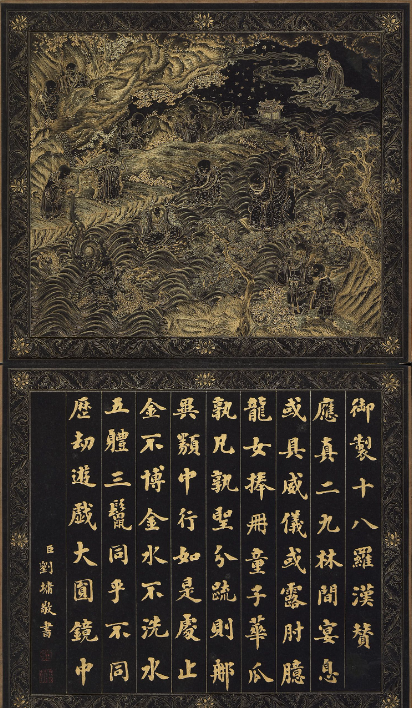 御製十八羅漢贊
應真二九林間宴息
或具威儀或露肘臆
龍女捧冊童子華瓜
孰凡孰聖分疏則那
異類中行如是處止
金不博金水不洗水
五體三鬚同乎不同
歷劫遊戲大圓鏡中
臣劉墉敬書